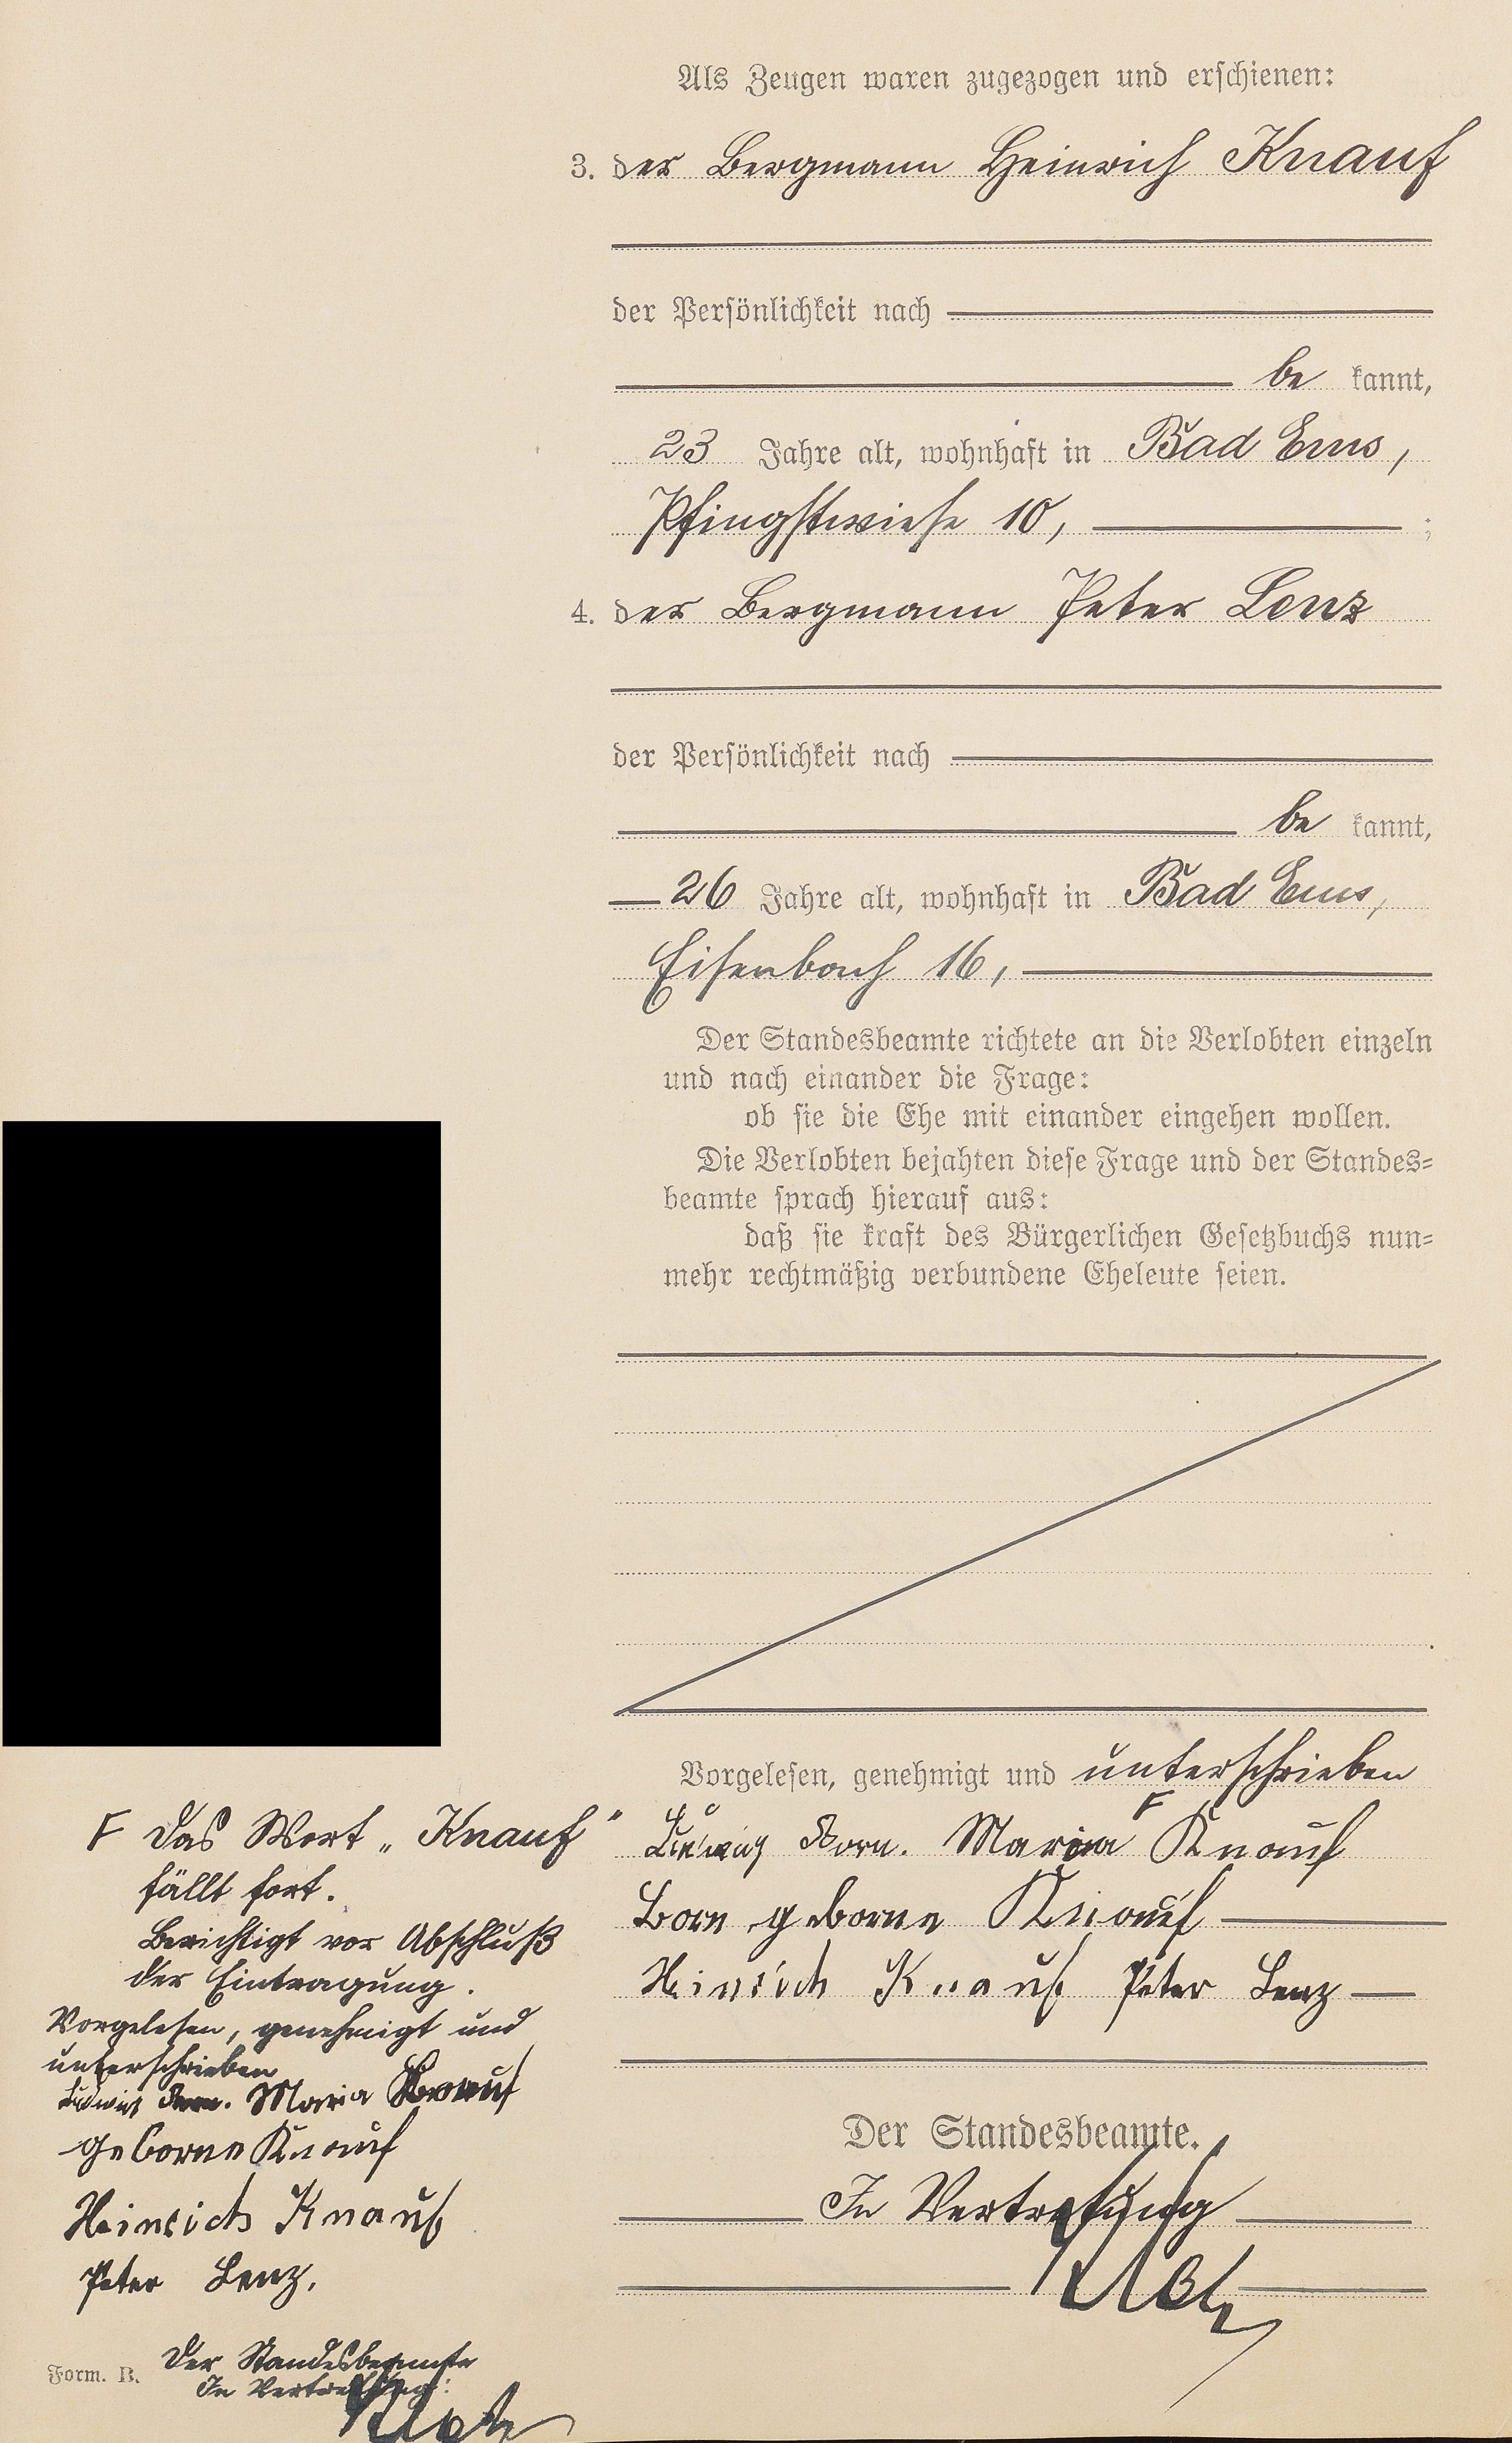 Als Zeugen waren zugezogen und erschienen:
3. der Bergmann Heinrich Knauf
der Persönlichkeit nach
be kannt,
23 Jahre alt, wohnhaft in Bad Ems,
Pfingstwiese 10, ;
4. der Bergmann Peter Lenz
der Persönlichkeit nach
be kannt,
26 Jahre alt, wohnhaft in Bad Ems,
Eisenbach 16,
Der Standesbeamte richtete an die Verlobten einzeln
und nach einander die Frage:
ob sie die Ehe mit einander eingehen wollen.
Die Verlobten bejahten diese Frage und der Standes=
beamte sprach hierauf aus:
daß sie kraft des Bürgerlichen Gesetzbuchs nun=
mehr rechtmäßig verbundene Eheleute seien.
Vorgelesen, genehmigt und unterschrieben
Ludwig Born. Maria F Knauf
Born geborne Knauf
Heinrich Knauf Peter Lenz
Der Standesbeamte.
In Vertretung
F Das Wort „Knauf"
fällt fort.
Berichtigt vor Abschluß
der Eintragung.
Vorgelesen, genehmigt und
unterschrieben
Ludwig Born. Maria
geborne Knauf
Heinrich Knauf
Peter Lenz.
Der Standesbeamte
In Vertretung:
Form. B.